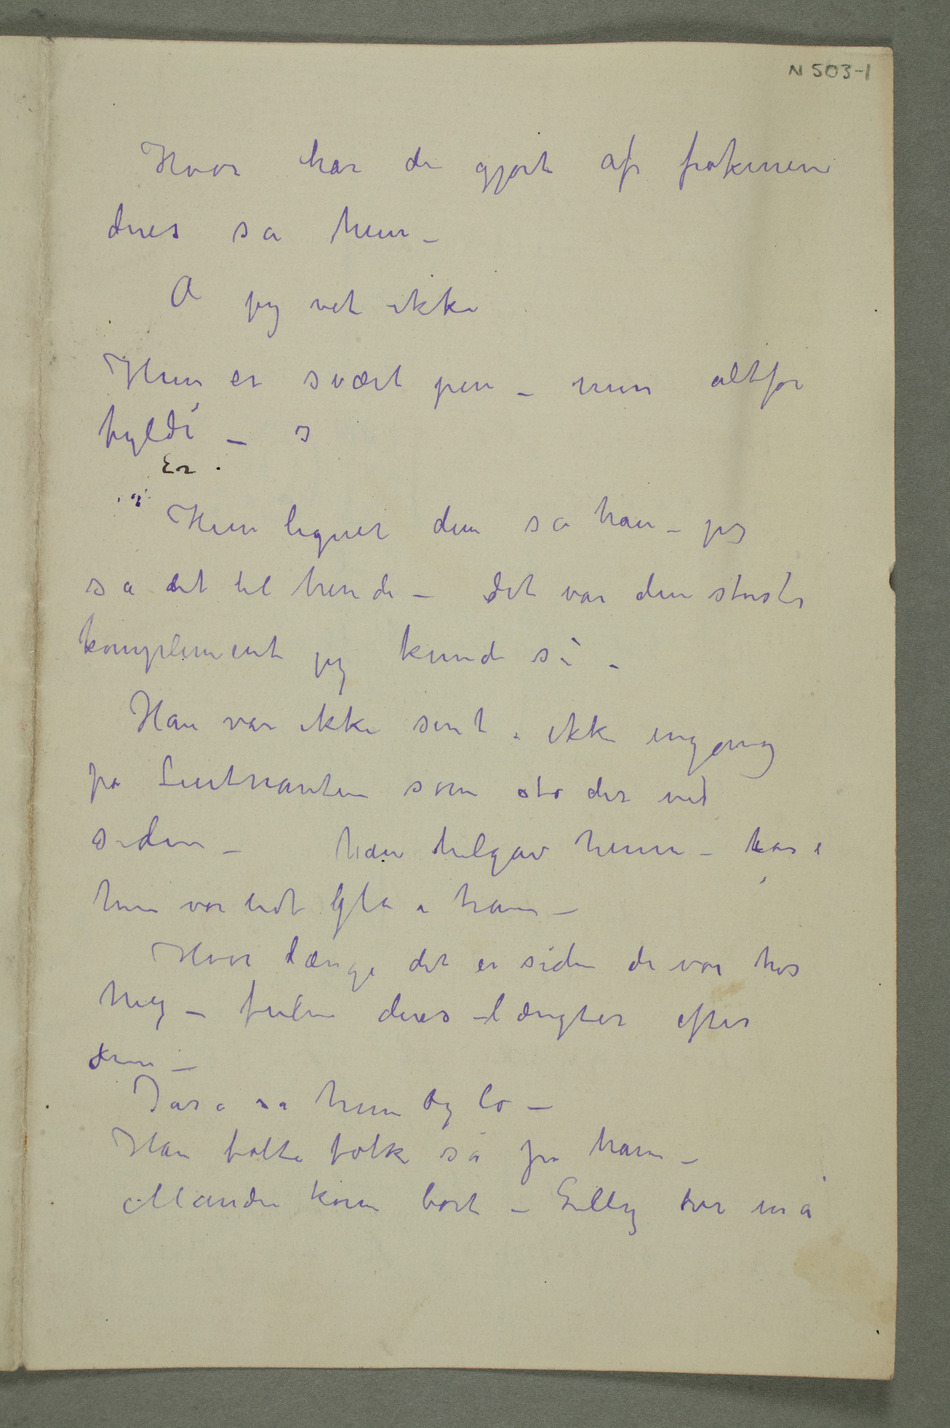 N 503-1
Hvor har de gjort af frøkenen
deres sa hun –
Å jeg vet ikke
Hun er svært pen – men altfor
fyldi – s
Er
Hun ligner dem sa han – jeg
sa det til hende – det var den største
kompliment jeg kunde si –
Han var ikke sint – ikke engang
på Løitnanten som sto der ved
siden – han tilgav henne –
hun var lidt gla i ham –
Hvor længe det er siden de var hos
mig – fulen deres længter efter
dem –
Jaså sa hun og lo –
Han følte folk så på ham –
Manden kom bort – Lilly